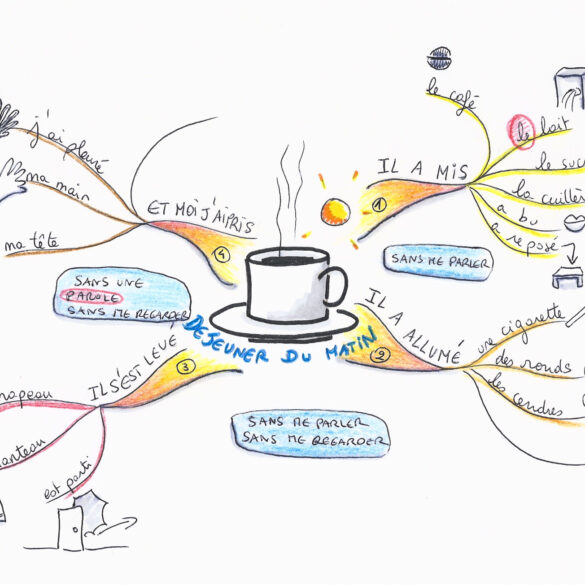 le café
le lait
le suc
la cuillè
a bu
a reposé
IL A MIS
1
SANS ME PARLER
IL A ALLUMÉ
2
une cigarette
des ronds
les cendres
SANS ME PARLER
SANS ME REGARDER
IL S'EST LEVÉ
3
hapeau
anteau
est parti
SANS UNE
PAROLE
SANS ME REGARDER
ET MOI J'AI PRIS
4
j'ai pleuré
ma main
ma tête
DEJEUNER DU MATIN